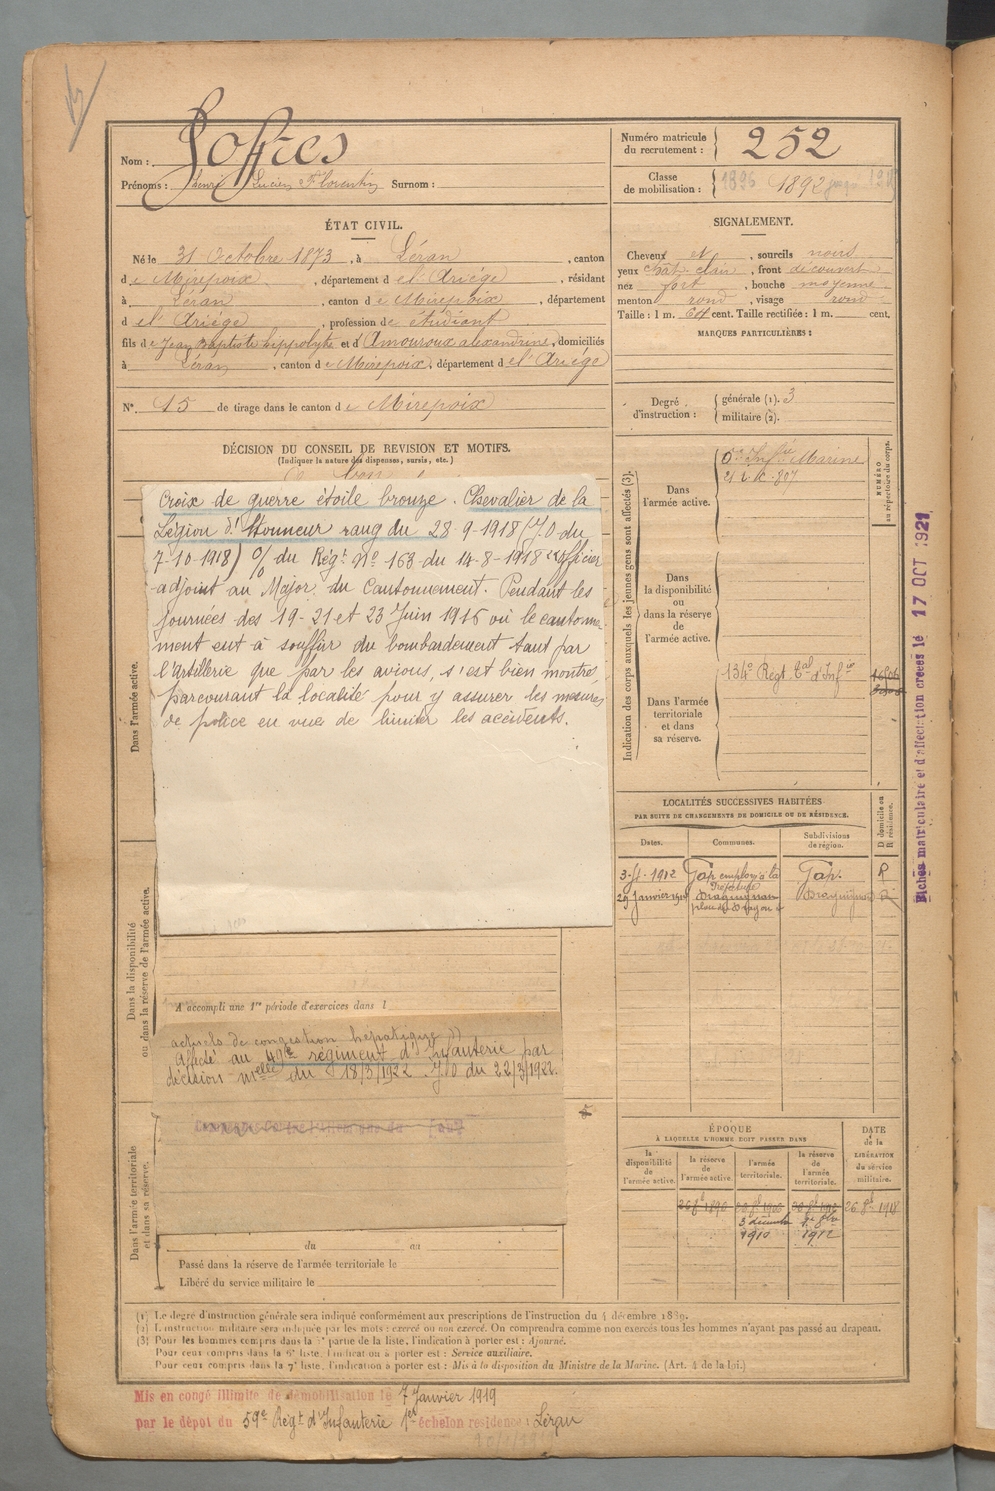 Nom : Loffres
Prénoms : Henri Lucien Florentin Surnom :
Numéro matricule du recrutement : 252
Classe de mobilisation : 1896 1892
ÉTAT CIVIL.
Né le 31 Octobre 1873, à Léran, canton
de Mirepoix, département de l'Ariège, résidant
à Léran, canton de Mirepoix, département
de l'Ariège, profession de étudiant
fils de Jean Baptiste hippolyte et d'Amouroux alexandrine, domiciliés
à Léran, canton de Mirepoix, département de l'Ariège
N° 15 de tirage dans le canton de Mirepoix
SIGNALEMENT.
Cheveux et, sourcils noirs
yeux chât clair, front découvert
nez fort, bouche moyenne
menton rond, visage rond
Taille : 1 m. 64 cent. Taille rectifiée : 1 m. cent.
MARQUES PARTICULIÈRES :
Degré d'instruction : générale (1). 3
militaire (2).
DÉCISION DU CONSEIL DE REVISION ET MOTIFS.
(Indiquer la nature des dispenses, sursis, etc.)
bon
Croix de guerre étoile bronze. Chevalier de la
Légion d'Honneur rang du 28-9-1918 (J.O du
7-10-1918) O/ du Régt N° 163 du 14-8-1918 "officier
adjoint au Major du Cantonnement. Pendant les
journées des 19-21 et 23 Juin 1916 où le cantonne
ment eut à souffrir du bombardement tant par
l'Artillerie que par les avions, s'est bien montré,
parcourant la localité pour y assurer les mesures
de police en vue de limiter les accidents.
Dans l'armée active.
Dans la disponibilité
ou dans la réserve de l'armée active.
A accompli une 1re période d'exercices dans l
actuels de congestion hépatique ))
Affecté au 49e régiment d'Infanterie par
décision melle du 18/3/1922. J.O du 22/3/1922.
Dans l'armée territoriale
et dans sa réserve.
du au
Passé dans la réserve de l'armée territoriale le
Libéré du service militaire le
Indication des corps auxquels les jeunes gens sont affectés (3).
NUMÉRO
au répertoire du corps.
Dans
l'armée active.
5e Infie Marine
Dans
la disponibilité
ou
dans la réserve
de
l'armée active.
Dans l'armée
territoriale
et dans
sa réserve.
134e Régt tal d'Infie
LOCALITÉS SUCCESSIVES HABITÉES
PAR SUITE DE CHANGEMENTS DE DOMICILE OU DE RÉSIDENCE.
Dates. Communes. Subdivisions de région. D domicile ou R résidence.
1912 Gap employé à la Préfecture Gap. R
29 Janvier Draguignan Draguignan R
ÉPOQUE
À LAQUELLE L'HOMME DOIT PASSER DANS
la disponibilité de l'armée active. la réserve de l'armée active. l'armée territoriale. la réserve de l'armée territoriale. DATE de la LIBÉRATION du service militaire.
3 décembre 1910
1912
1918
Fiches matriculaire et d'affectation créées le 17 OCT 1921
(1) Le degré d'instruction générale sera indiqué conformément aux prescriptions de l'instruction du 4 décembre 1889.
(2) L'instruction militaire sera indiquée par les mots : exercé ou non exercé. On comprendra comme non exercés tous les hommes n'ayant pas passé au drapeau.
(3) Pour les hommes compris dans la 5e partie de la liste, l'indication à porter est : Ajourné.
Pour ceux compris dans la 6e liste, l'indication à porter est : Service auxiliaire.
Pour ceux compris dans la 7e liste, l'indication à porter est : Mis à la disposition du Ministre de la Marine. (Art. 4 de la loi.)
Mis en congé illimité de démobilisation le 7 Janvier 1919
par le dépôt du 59e Régt d'Infanterie 1er échelon résidence : Léran